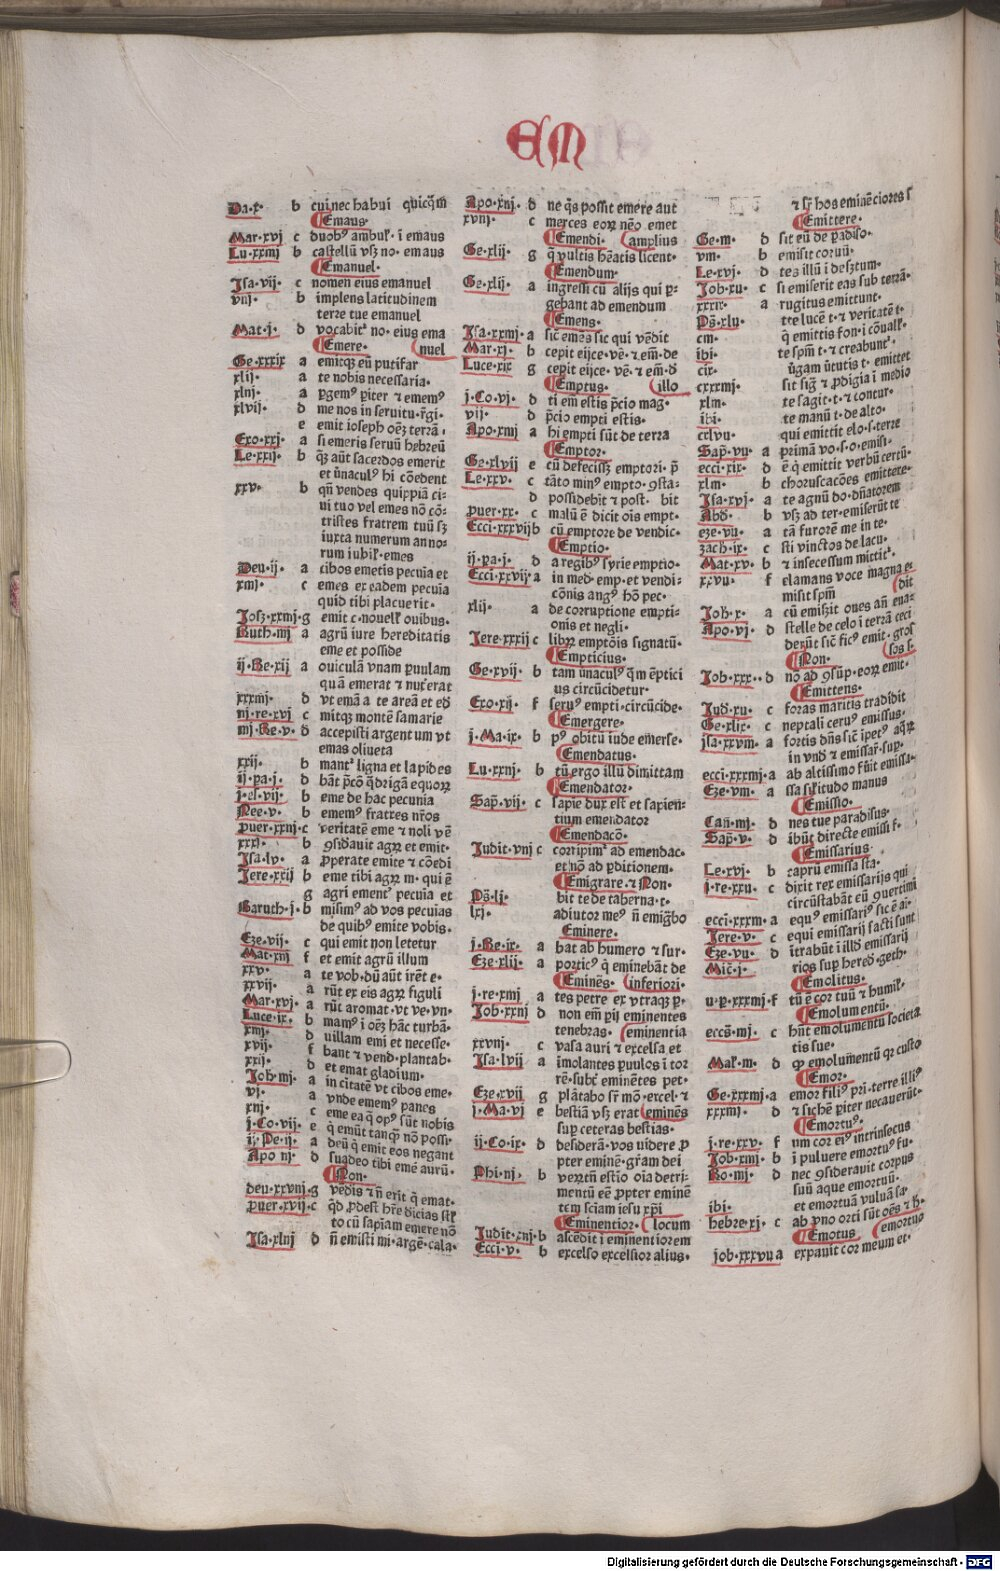 EM
Da·x· b cui nec habui quicq̄m
Emaus·
Mar·xvj c duobꝰ ambul᷑· ī emaus
Lu·xxiiij b castellū vsꝫ no· emaus
Emanuel·
Jsa·vij· c nomen eius emanuel
viij· b implens latitudinem
terre tue emanuel
Mat·j· d vocabitᷣ no· eius ema
Emere· (nuel
Ge·xxxix a emitqꝫ eū putifar
xlij· a te nobis necessaria·
xliij· a ꝑgemꝰ ꝑiter ⁊ ememꝰ
xlvij· d me nos in seruitu·
e emit ioseph oēꝫ terrā·
Exo·xxj· a si emeris seruū hebreū
Le·xxij· b q̄ꝫ aūt sacerdos emerit
et v̄naculꝰ hi cōedent
xxv· b qn̄ vendes quippiā ci-
ui tuo vel emes nō cō-
tristes fratrem tuū sꝫ
iuxta numerum anno-
rum iubil᷑·emes
Deu·ij· a cibos emetis pecuīa et
xiiij· c emes ex eadem pecuīa
quid tibi placuerit·
Josꝫ·xxiiij·g emit c·nouell᷑ ouibus·
Ruth·iiij a agrū iure hereditatis
eme et posside
ij·Re·xij a ouiculā vnam ꝑuulam
quā emerat ⁊ nut᷑erat
xxiiij· d vt emā a te areā et ed
iij·re·xvj c mitqꝫ montē samarie
iiij·Re·v· d accepisti argentum vt
emas oliueta
xxij· b mantᷣ ligna et lapides
ij·pa·j· d bāt p̄co q̄drigā equoꝝ
j·es·vij· b eme de hac pecunia
Nee·v· b ememꝰ fratres nr̄os
puer·xxiij·c veritatē eme ⁊ noli vē
xxxi· b ꝯsidauit agꝝ et emit·
Jsa·lv· a ꝓperate emite ⁊ cōedi
Jere·xxij b eme tibi agꝝ m·qui ē
g agri ementᷣ pecuīa et
Baruth·j· b misimꝰ ad vos pecuīas
de quibꝰ emite vobis·
Eze·vij· c qui emit non letetur
Mat·xiij f et emit agrū illum
xxv· a te vob·dū aūt irēt e·
xxvij· a rūt ex eis agꝝ figuli
Mar·xvj· a rūt aromat·vt ve·vn·
Luce·ix· b mamꝰ i oēꝫ hāc turbā·
xiiij· d uillam emi et necesse·
xvij· f bant ⁊ vend·plantab·
xxij· d et emat gladium·
Joh·iiij· a in citatē vt cibos eme·
vj· a vnde ememꝰ panes
xiij· c eme ea q̄ opꝰ sūt nobis
j·Co·vij· e q̄ emūt tanq̄ nō possi·
ij·Pe·ij· a deū q̄ emit eos negant
Apo iij· d suadeo tibi emē aurū·
Non·
deu·xxviij·g vedis ⁊ n̄ erit q̄ emat·
puer·xvij·c q̄d ꝓdest hr̄e dicias stl᷑
to cū sapīam emere nō
Jsa·xliij d n̄ emisti mi·argē·cala·
Apo·xiij· d ne q̄s possit emere aut
xviij· c merces eoꝝ nēo emet
Emendi· (amplius
Ge·xlij· g q̄ vultis hēatis licent·
Emendum·
Ge·xlij· a ingressi cū alijs qui ꝑ-
gebant ad emendum
Emens·
Jsa·xxiiij·a sic emēs sic qui vēdit
Mar·xj· b cepit eijce·vē·⁊ em̄·de
Luce·xix g cepit eijce·vē·⁊ em̄·d
Emptus· (illo
j·Co·vj· d ti em̄ estis p̄cio mag·
vij· d p̄cio empti estis·
Apo·xiiij a hi empti sūt de terra
Emptor·
Ge·xlvij e cū defecissꝫ emptori· p̄
Le·xxv· c tāto minꝰ empto·ꝯsta·
d possidebit ⁊ post· bit
puer·xx· c malū ē dicit oīs empt·
Ecci·xxxvij b cū emptore de vendic·
Emptio·
ij·pa·j· d a regibꝰ syrie emptio·
Ecci·xxvij·a in med·emp·et vendi·
cōnis angꝰ hō pec·
xlij· a de corruptione empti-
onis et negli·
Jere·xxxij c libꝝ emptōis signatū·
Empticius·
Ge·xvij· b tam v̄naculꝰ q̄m ēptici
us circūcidetur·
Exo·xij· f seruꝰ empti·circūcide·
Emergere·
j·Ma·ix· b pꝰ obitū iude em̄erse·
Emendatus·
Lu·xxiij· b tū ergo illū dimittam
Emendator·
Sap·vij· c sapie dux est et sapien-
tium emendator
Emendacō·
Judit·viij c corripimᷣ ad emendac·
et nō ad ꝑditionem·
Emigrare·⁊ Non·
Ps̄·lj· bit te de taberna·t·
lxj· adiutor meꝰ n̄ emig̈bo
Eminere·
j·Re·ix· a bat ab humero ⁊ sur·
Eze·xlij· a porticꝰ q̄ eminebāt de
Eminēs· (inferiori·
j·re·xiiij a tes petre ex vtraqꝫ ꝑ·
Job·xxiij d non em̄ pij eminentes
tenebras· (eminentia
xxviij· c vasa auri ⁊ excelsa et
Jsa·lvij a imolantes ꝑuulos i tor
rē·subt᷑ eminētes pet·
Eze·xvij g plātabo sr̄ mō·excel·⁊
j·Ma·vj e bestiā vsꝫ erat (eminēs
suꝑ ceteras bestias·
ij·Co·ix· d desiderā·vos uidere ꝓ
pter eminē·gr̄am dei
Phi·iij· b veꝝtn̄ estīo oīa detri-
mentū eē ꝓpter eminē
tem sciam iesu xp̄i
Eminentior· (locum
Judit·xiij·b ascēdit i eminentiorem
Ecci·v· b excelso excelsior alius·
⁊ sꝫ hos eminēciores s
Emittere·
Ge·iii· d sit eū de ꝑadiso·
viii· b emisit coruū·
Le·xvj· d tes illū i desꝫtum·
Job·xii· c si emiserit eas sub terrā·
xxxix· a rugitus emittunt·
Ps̄·xlii· tte lucē t·⁊ veritatē t·
ciii· q̄ emittis fon·i cōuall᷑·
ibi· te spm̄ t·⁊ creabuntᷣ·
cix· v̄gam v̄tutis t·emittet
cxxxiiij· sit sig̈ ⁊ ꝓdigia i medio
xlm· te sagit·t·⁊ contur·
ibi· te manū t·de alto·
cxlvii· qui emittit elo·s·terre
Sap·vii· a primā vo·s·o·emisi·
ecci·xix· d ē q̄ emittit verbū certū·
xlm· b choruscacōes emittere·
Jsa·xvj· a te agnū do·dn̄atorem
Abd· b vsꝫ ad ter·emiserūt te
eze·vii· a tā furorē me in te·
zach·ix· c sti vinctos de lacu·
Mat·xv· b ⁊ in secessum mittitᷣ·
xxvii· f clamans voce magna e·
misit spm̄ (dit
Joh·x· a cū emisꝫit oues an̄ eua·
Apo·vj· d stelle de celo i terrā ceci
derūt sic̄ ficꝰ emit·gros
Non· (sos s·
Job·xxx·· d nō ad ꝯsūp·eoꝝ emit·
Emittens·
Jud·xii· c foras maritis tradidit
Ge·xlix· c neptali ceruꝰ emissus·
jsa·xxviii· a fortis dn̄s sic̄ īpetꝰ aq̄ꝝ
in vnd ⁊ emissar·sup·
ecci·xxxiiij·a ab altissimo fūit emissa·
Eze·viii· a ssa sil᷑itudo manus
Emissio·
Can̄·iiij· d nes tue paradisus·
Sap̄·v· d ibūt directe emissi f·
Emissarius
Le·xvj· b caprū emissa sta·
j·re·xxii· c dixit rex emissarijs qui
circūstabāt eū ꝯuertimi
ecci·xxxiii· a equꝰ emissariꝰ sic ē ai·
Jere·v· c equi emissarij facti sunt
Eze·vii· d itrabūt i illō emissarij
Mic̄·j· rios suꝑ hered·geth·
Emolitus·
ii·p·xxxiiij·f tū ē cor tuū ⁊ humil᷑·
Emolumentū·
eccs̄·iiij· c hn̄t emolumentū societa
tis sue·
Mal᷑·iii· d qꝫ emolumentū qꝛ custo
Emor·
Ge·xxxiiij·a emor filiꝰ pri·terre illiꝰ
xxxiiij· d ⁊ sichē ꝑiter necauerūt·
Emortuꝰ·
j·re·xxv· f um cor eiꝰ intrinsecus
Job·xiiij· b i puluere emortuꝰ fu·
Ro·iiij· d nec ꝯsiderauit corpus
suū aque emortuū·
ibi· et emortuā vuluā sa·
hebre·xj· c ab ꝟno orti sūt oēs ⁊ h·
Emotus (emortuo
job·xxxvii a expauit cor meum et·
Digitalisierung gefördert durch die Deutsche Forschungsgemeinschaft - DFG